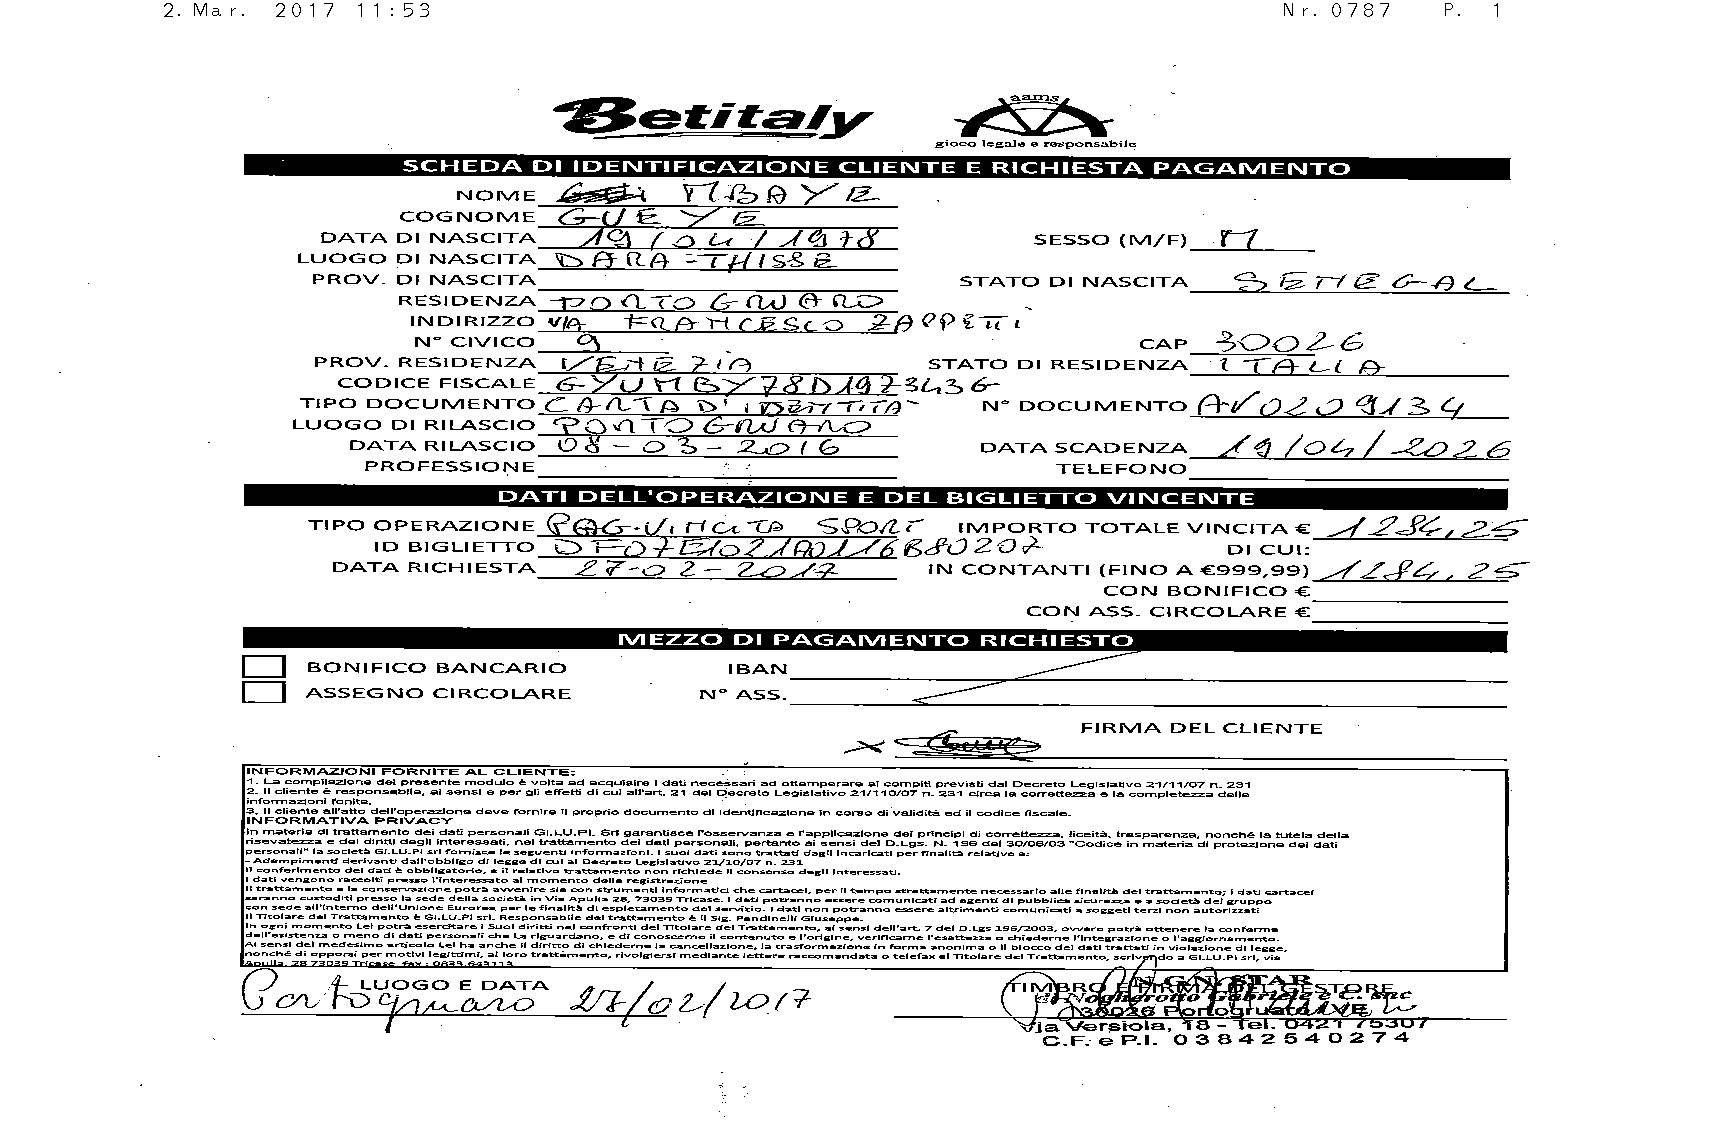 2. Mar. 2017 11:53 Nr. 0787 P. 1
Betitaly
aams
gioco legale e responsabile
SCHEDA DI IDENTIFICAZIONE CLIENTE E RICHIESTA PAGAMENTO
NOME MBAYE
COGNOME GUEYE
DATA DI NASCITA 19/04/1978 SESSO (M/F) M
LUOGO DI NASCITA DARA-THISSE
PROV. DI NASCITA STATO DI NASCITA SENEGAL
RESIDENZA PORTOGRUARO
INDIRIZZO VIA FRANCESCO ZAPPETTI
N° CIVICO 9 CAP 30026
PROV. RESIDENZA VENEZIA STATO DI RESIDENZA ITALIA
CODICE FISCALE GYUMBY78D19Z343G
TIPO DOCUMENTO CARTA D'IDENTITA' N° DOCUMENTO AV0209134
LUOGO DI RILASCIO PORTOGRUARO
DATA RILASCIO 08-03-2016 DATA SCADENZA 19/04/2026
PROFESSIONE TELEFONO
DATI DELL'OPERAZIONE E DEL BIGLIETTO VINCENTE
TIPO OPERAZIONE PAG. VINCITA SPORT IMPORTO TOTALE VINCITA € 1284,25
ID BIGLIETTO DF07E1021A0116B80207 DI CUI:
DATA RICHIESTA 27-02-2017 IN CONTANTI (FINO A €999,99) 1284,25
CON BONIFICO €
CON ASS. CIRCOLARE €
MEZZO DI PAGAMENTO RICHIESTO
BONIFICO BANCARIO IBAN
ASSEGNO CIRCOLARE N° ASS.
FIRMA DEL CLIENTE
X
INFORMAZIONI FORNITE AL CLIENTE:
1. La compilazione del presente modulo è volta ad acquisire i dati necessari ad ottemperare ai compiti previsti dal Decreto Legislativo 21/11/07 n. 231
2. Il cliente è responsabile, ai sensi e per gli effetti di cui all'art. 21 del Decreto Legislativo 21/110/07 n. 231 circa la correttezza e la completezza delle
informazioni fonite.
3. Il cliente all'atto dell'operazione deve fornire il proprio documento di identificazione in corso di validità ed il codice fiscale.
INFORMATIVA PRIVACY
In materia di trattamento dei dati personali GI.LU.PI. Srl garantisce l'osservanza e l'applicazione dei principi di correttezza, liceità, trasparenza, nonché la tutela della
risevatezza e dei diritti degli interessati, nel trattamento dei dati personali, pertanto ai sensi del D.Lgs. N. 196 del 30/06/03 "Codice in materia di protezione dei dati
personali" la società GI.LU.PI srl fornisce le seguenti informazioni. I suoi dati sono trattati dagli incaricati per finalità relative a:
- Adempimenti derivanti dall'obbligo di legge di cui al Decreto Legislativo 21/10/07 n. 231
Il conferimento dei dati è obbligatorio, e il relativo trattamento non richiede il consenso degli interessati.
I dati vengono raccolti presso l'interessato al momento della registrazione
Il trattamento e la conservazione potrà avvenire sia con strumenti informatici che cartacei, per il tempo strettamente necessario alle finalità del trattamento; i dati cartacei
saranno custoditi presso la sede della società in Via Apulia 28, 73039 Tricase. I dati potranno essere comunicati ad agenti di pubblica sicurezza e a società del gruppo
con sede all'interno dell'Unione Eurorea per le finalità di espletamento del servizio. I dati non potranno essere altrimenti comunicati a soggeti terzi non autorizzati
Il Titolare del Trattamento è GI.LU.PI srl. Responsabile del trattamento è il Sig. Pendinelli Giuseppe.
In ogni momento Lei potrà esercitare i Suoi diritti nei confronti del Titolare del Trattamento, ai sensi dell'art. 7 del D.Lgs 196/2003, ovvero potrà ottenere la conferma
dell'esistenza o meno di dati personali che La riguardano, e di conoscerne il contenuto e l'origine, verificarne l'esattezza o chiederne l'integrazione o l'aggiornamento.
Ai sensi del medesimo articolo Lei ha anche il diritto di chiederne la cancellazione, la trasformazione in forma anonima o il blocco dei dati trattati in violazione di legge,
nonché di opporsi per motivi legittimi, al loro trattamento, rivolgersi mediante lettere raccomandata o telefax al Titolare del Trattamento, scrivendo a GI.LU.PI srl, via
Apulia, 28 73039 Tricase, fax : 0833.643113
LUOGO E DATA TIMBRO E FIRMA DEL GESTORE
Portogruaro 27/02/2017
STAR
di Nogherotto Gabriele e C. snc
30026 Portogruaro (VE)
Via Versiola, 18 - Tel. 0421 75307
C.F. e P.I. 03842540274